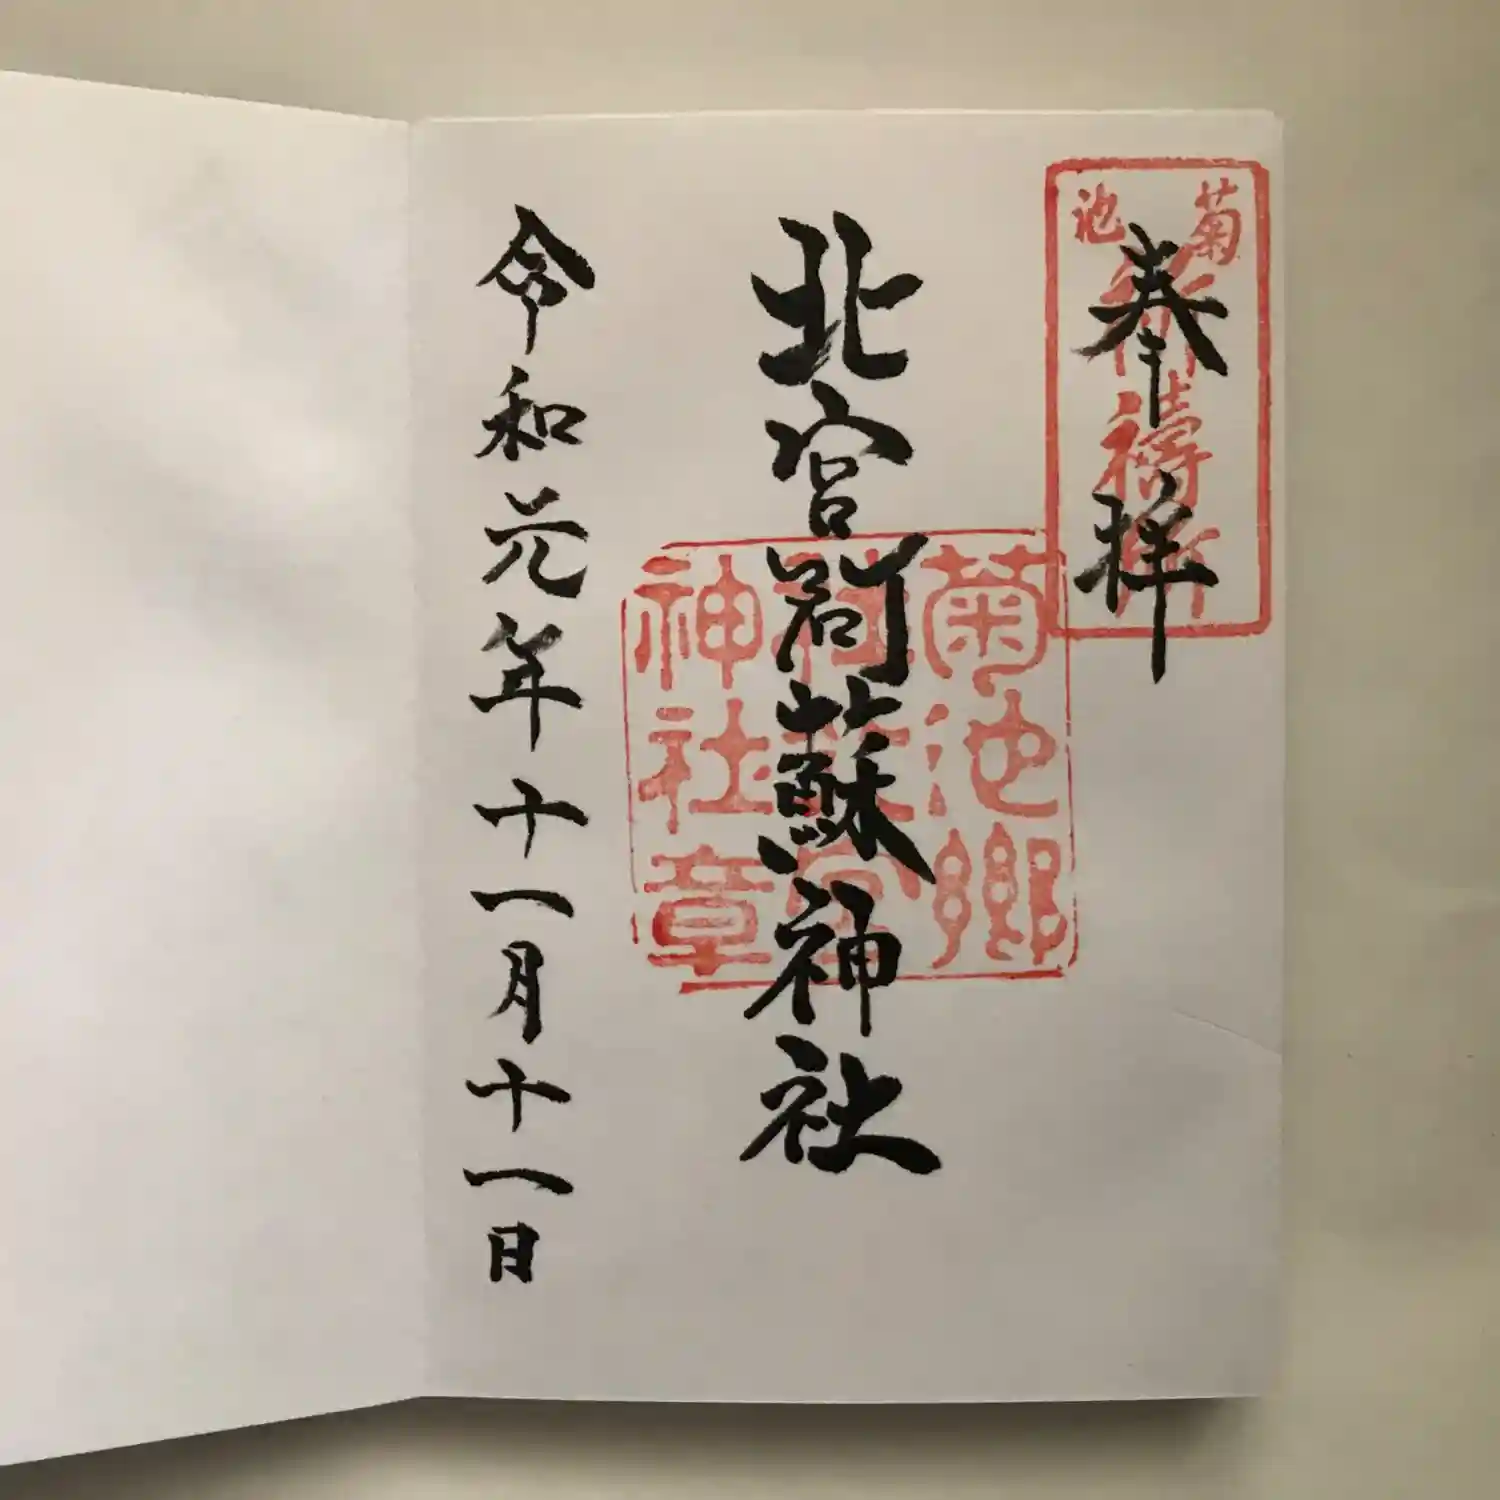 奉拝
菊池
祈祷所
北宮阿蘇神社
菊池郷
神社章
令和元年十一月十一日